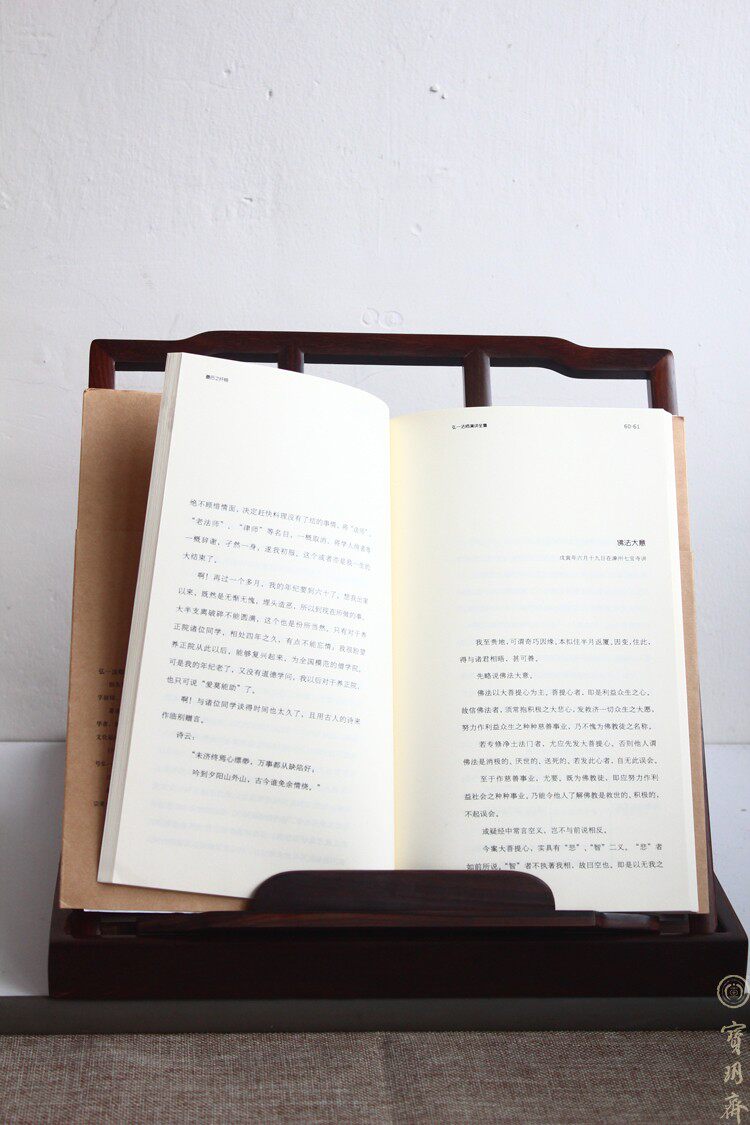 最后之忏悔
绝不顾惜情面，决定赶快料理没有了结的事情，将“法师”、
“老法师”、“律师”等名目，一概取消，将学人侍者等
一概辞谢，孑然一身，遂我初服，这个或者亦是我一生的
大结束了。
啊！再过一个多月，我的年纪要到六十了。想我出家
以来，既然是无惭无愧，埋头造恶，所以到现在所做的事，
大半支离破碎不能圆满，这个也是份所当然。只有对于养
正院诸位同学，相处四年之久，有点不能忘情；我很盼望
养正院从此以后，能够复兴起来，为全国模范的僧学院。
可是我的年纪老了，又没有道德学问，我以后对于养正院，
也只可说“爱莫能助”了。
啊！与诸位同学谈得时间也太久了，且用古人的诗来
作临别赠言。
诗云：
“未济终焉心缥缈，万事都从缺陷好；
吟到夕阳山外山，古今谁免余情绕。”
弘一法师演讲全集
60·61
佛法大意
戊寅年六月十九日在漳州七宝寺讲
我至贵地，可谓奇巧因缘。本拟住半月返厦。因变，住此，
得与诸君相晤，甚可喜。
先略说佛法大意。
佛法以大菩提心为主。菩提心者，即是利益众生之心。
故信佛法者，须常抱积极之大悲心，发救济一切众生之大愿，
努力作利益众生之种种慈善事业，乃不愧为佛教徒之名称。
若专修净土法门者，尤应先发大菩提心。否则他人谓
佛法是消极的、厌世的、送死的。若发此心者，自无此误会。
至于作慈善事业，尤要。既为佛教徒，即应努力作利
益社会之种种事业。乃能令他人了解佛教是救世的、积极的，
不起误会。
或疑经中常言空义，岂不与前说相反。
今案大菩提心，实具有“悲”、“智”二义。“悲”者
如前所说。“智”者不执著我相，故曰空也。即是以无我之
寶玥齋